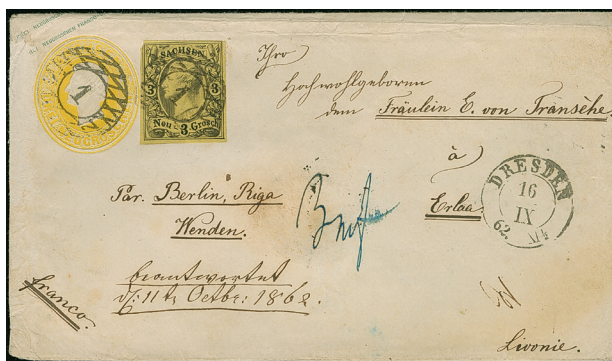 SACHSEN
3 3
Neu- 3 Grosch
Ihro
Hochwohlgeboren
dem Fräulein E. von Transéhe.
à
Erlaa
DRESDEN
16
IX
62.
Par. Berlin, Riga
Wenden.
beantwortet
d: 11 t Octbr: 1862.
franco.
Livonie.